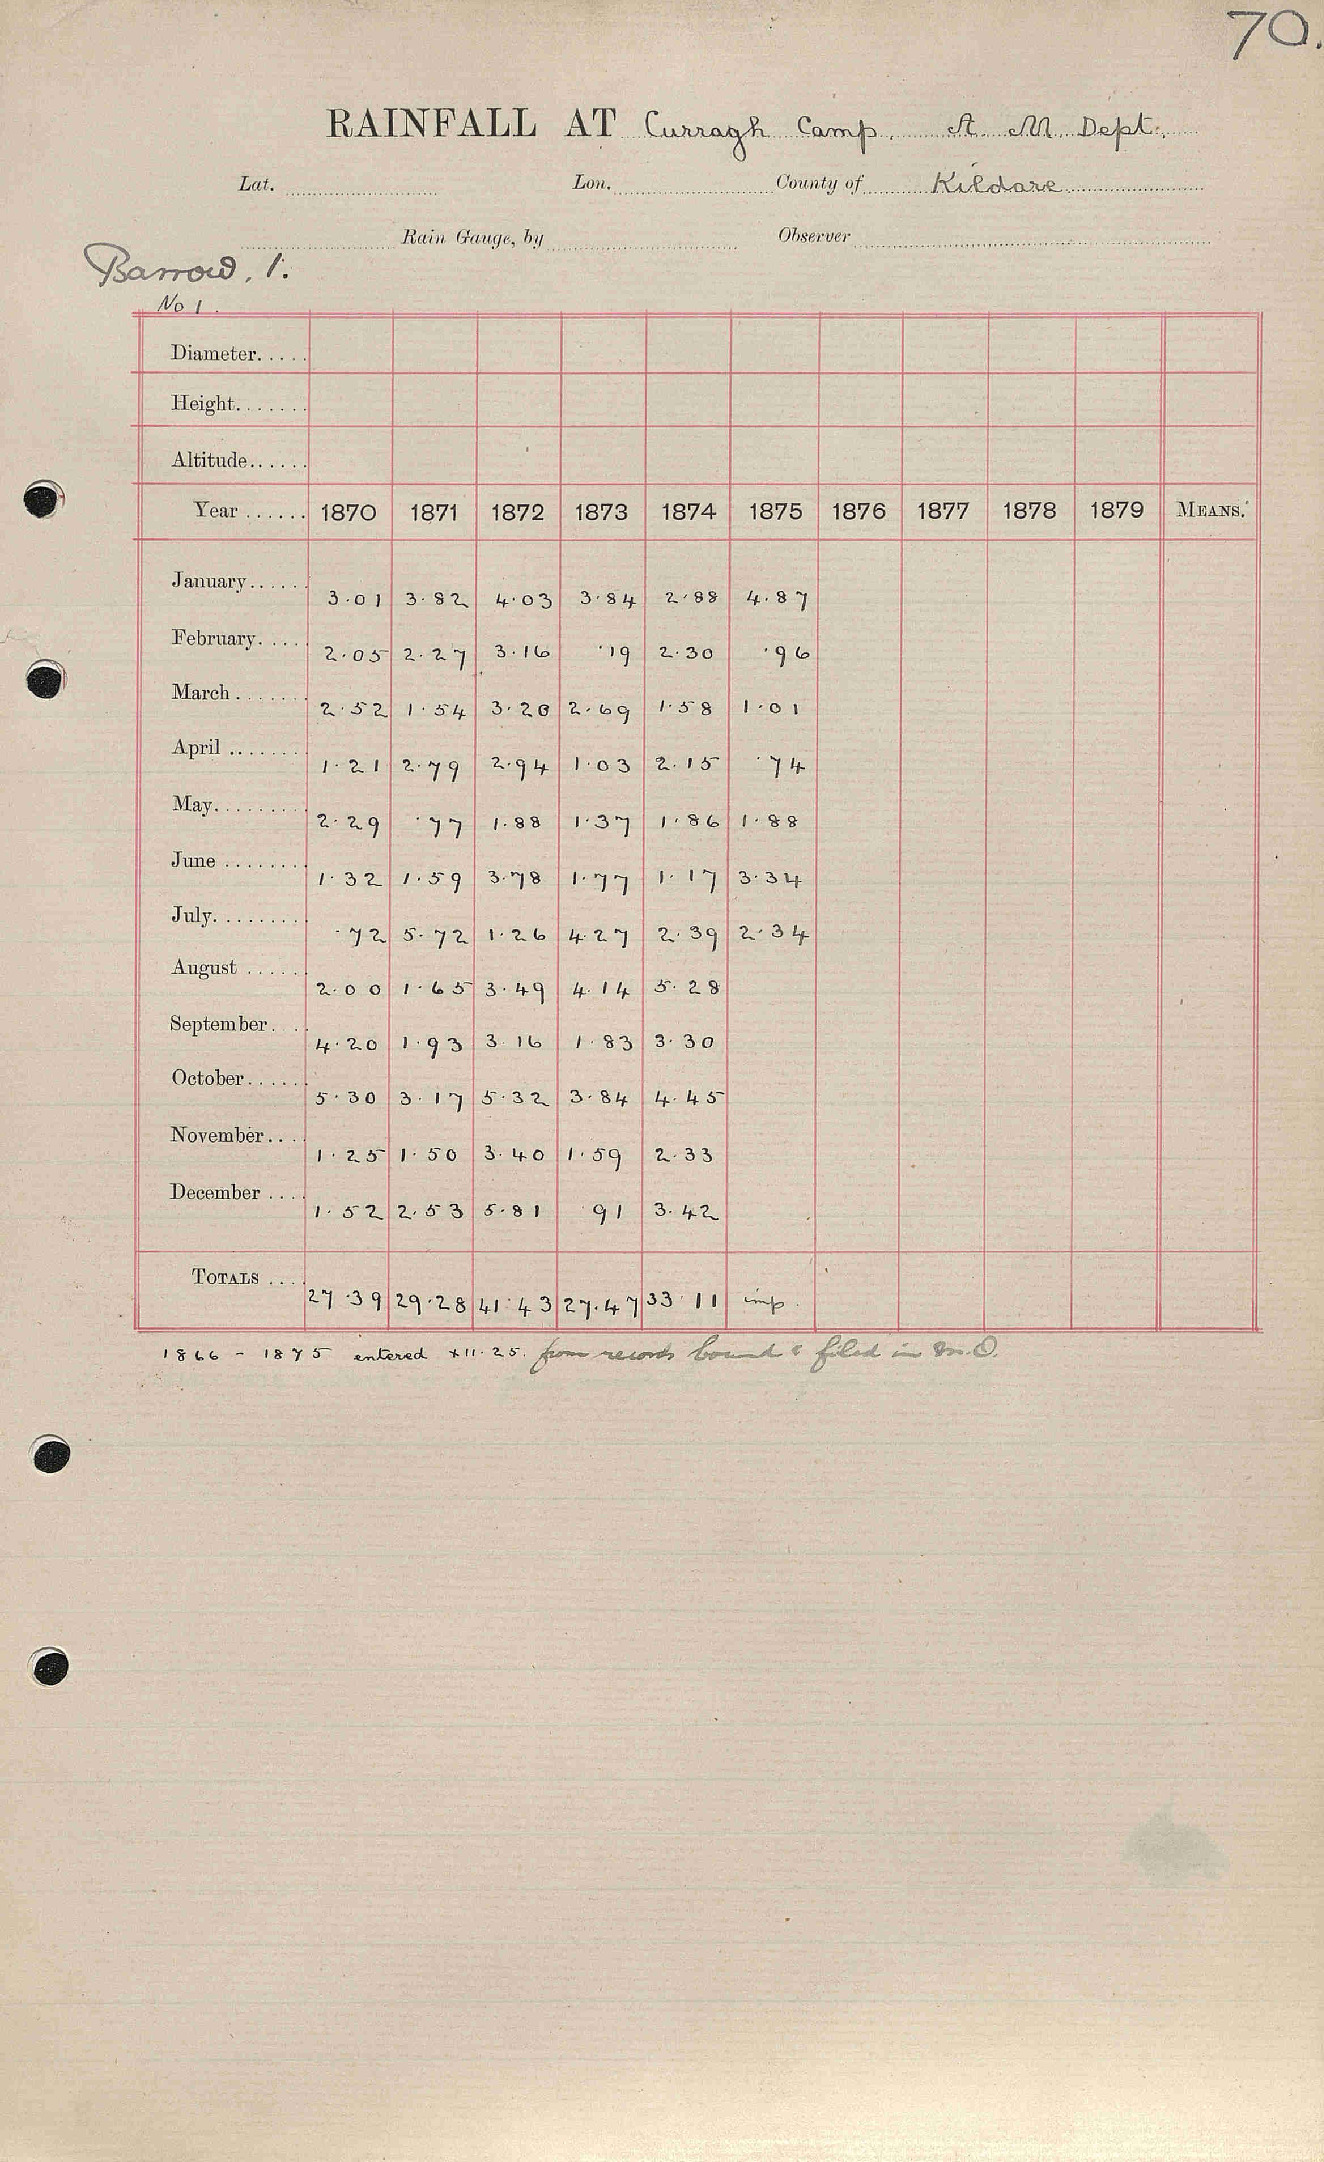 70.
RAINFALL AT Curragh Camp. A. M. Dept.
Lat. Lon. County of Kildare
Rain Gauge, by Observer
Barrow. 1.
No 1.
Diameter.....
Height.......
Altitude......
Year ...... 1870 1871 1872 1873 1874 1875 1876 1877 1878 1879 MEANS.
January...... 3.01 3.82 4.03 3.84 2.88 4.87
February..... 2.05 2.27 3.16 .19 2.30 .96
March ....... 2.52 1.54 3.20 2.69 1.58 1.01
April ........ 1.21 2.79 2.94 1.03 2.15 .74
May.......... 2.29 .77 1.88 1.37 1.86 1.88
June ........ 1.32 1.59 3.78 1.77 1.17 3.34
July.......... .72 5.72 1.26 4.27 2.39 2.34
August ...... 2.00 1.65 3.49 4.14 5.28
September... 4.20 1.93 3.16 1.83 3.30
October...... 5.30 3.17 5.32 3.84 4.45
November.... 1.25 1.50 3.40 1.59 2.33
December .... 1.52 2.53 5.81 .91 3.42
TOTALS .... 27.39 29.28 41.43 27.47 33.11 imp.
1866 - 1875 entered XII.25. from records bound & filed in M.O.